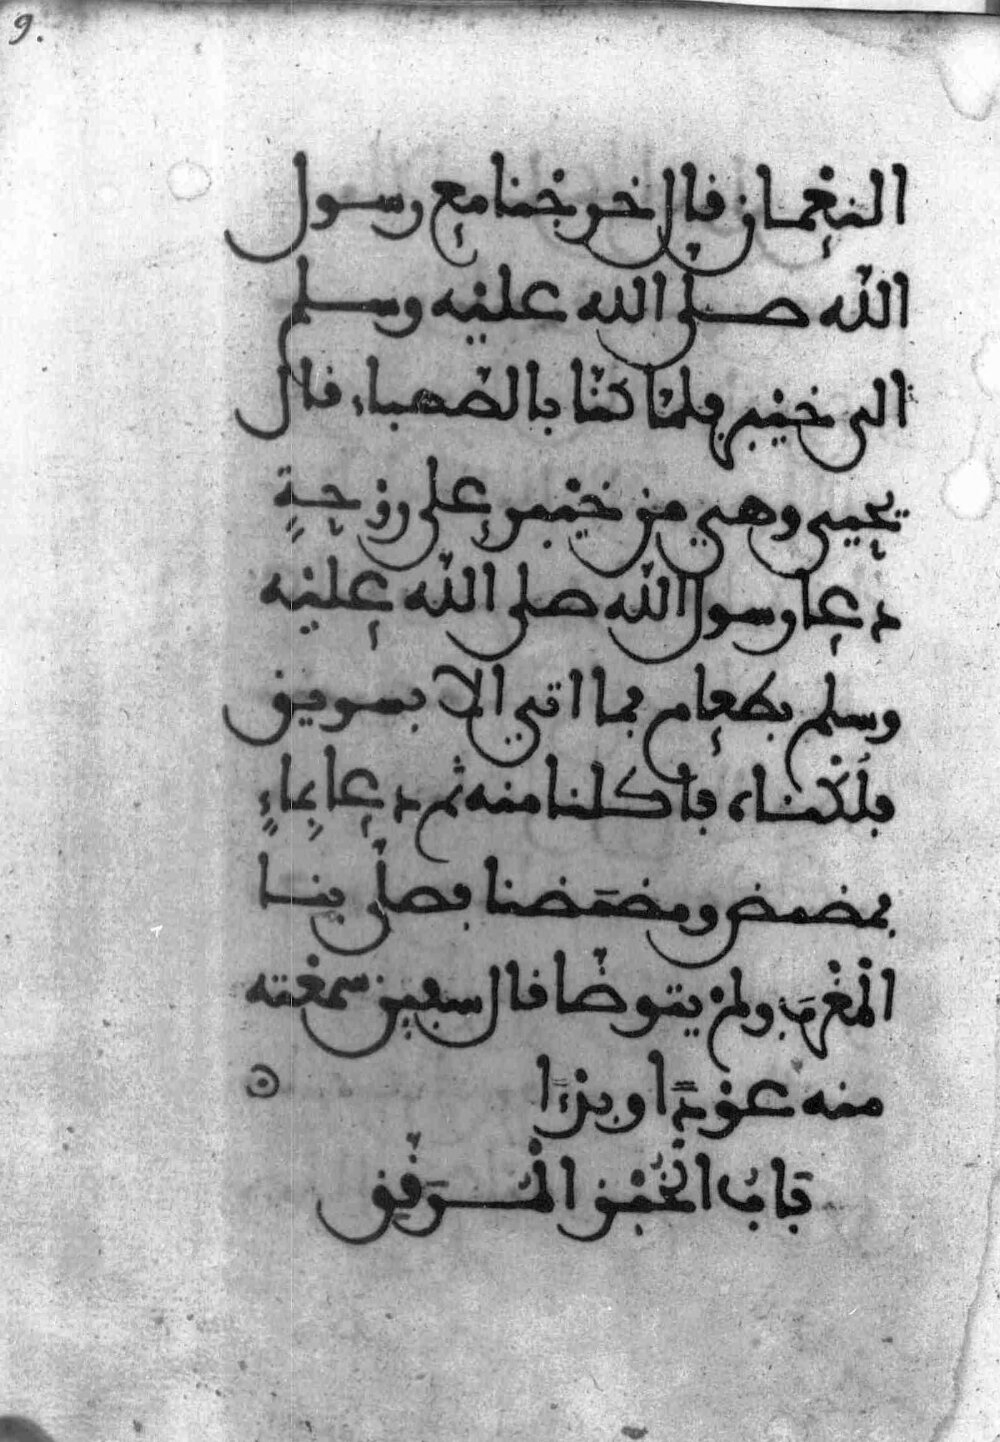 9.
النعمان قال خرجنا مع رسول
الله صلى الله عليه وسلم
الى خيبر فلما كنا بالصهباء قال
يحيى وهي من خيبر على روحة
دعا رسول الله صلى الله عليه
وسلم بطعام فما اتي الا بسويق
فلكناه فاكلنا منه ثم دعا بماء
فمضمض ومضمضنا فصلى بنا
المغرب ولم يتوضا قال سفين سمعته
منه عودا وبدءا
باب الخبز المرقق